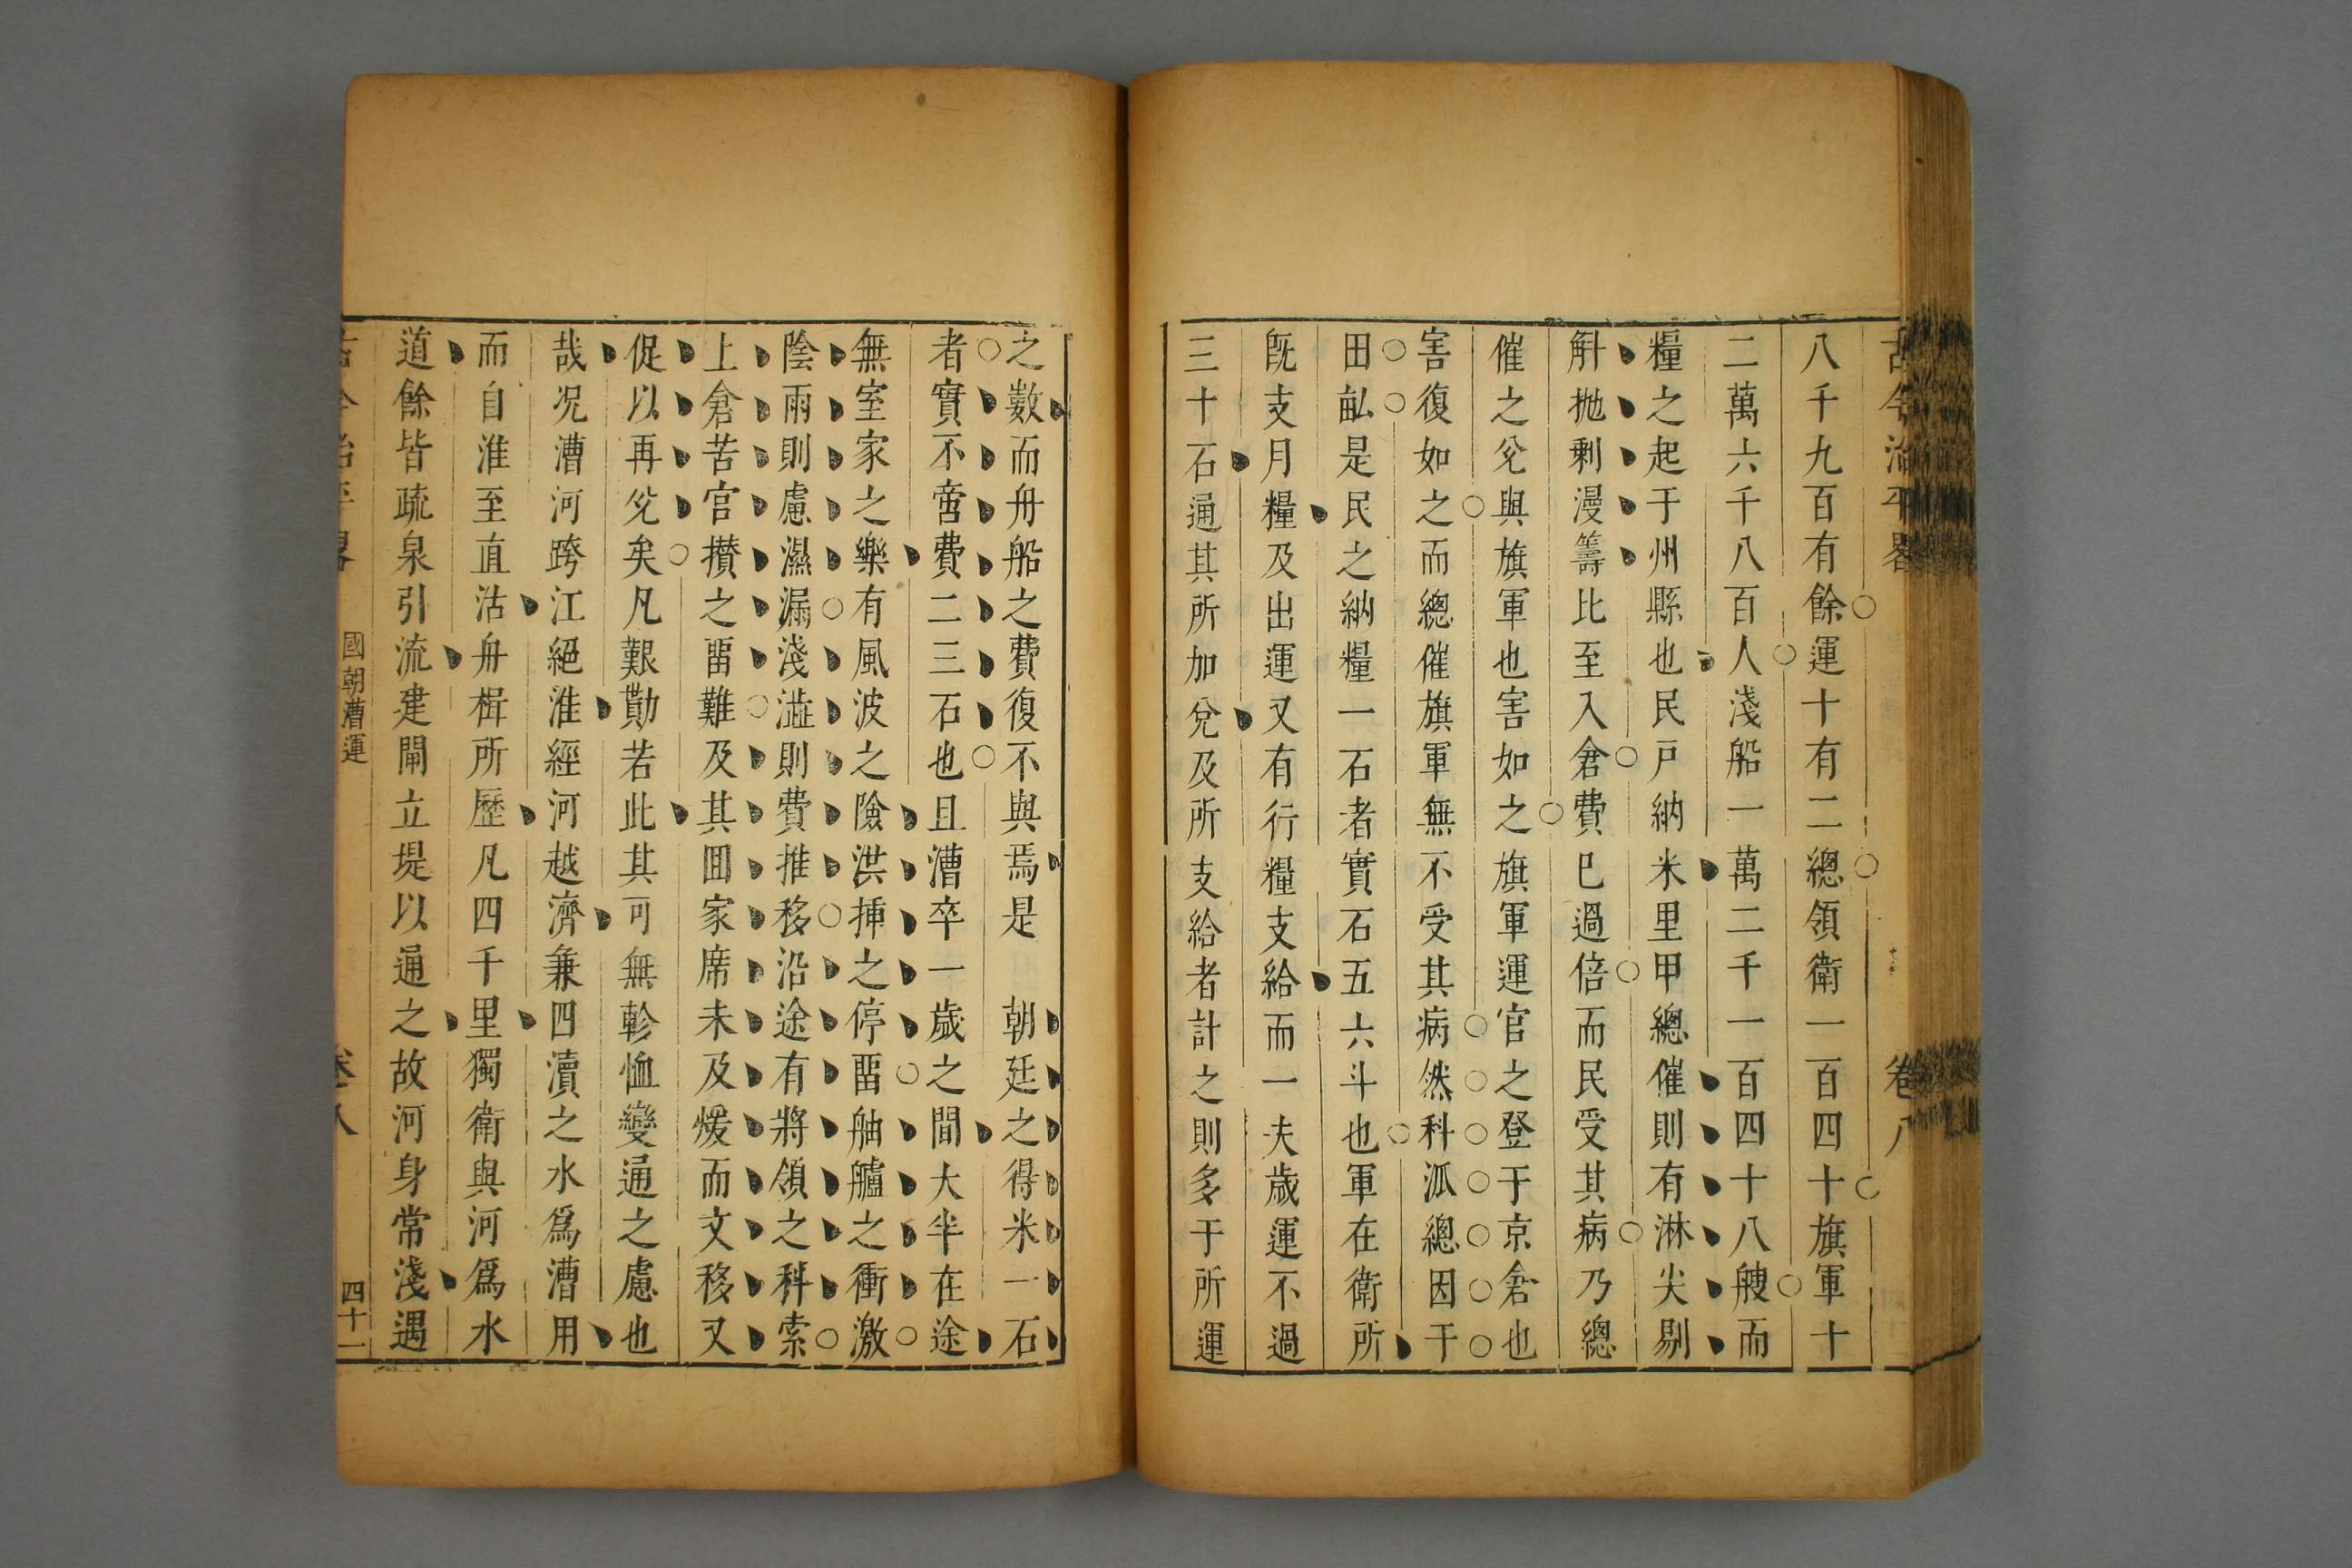 古今治平畧
卷八
八千九百有餘運十有二總領衛一百四十旗軍十
二萬六千八百人淺船一萬二千一百四十八艘而
糧之起于州縣也民戸納米里甲總催則有淋尖剔
斛抛剩漫籌比至入倉費巳過倍而民受其病乃總
催之兊與旗軍也害如之旗軍運官之登于京倉也
害復如之而總催旗軍無不受其病然科泒總因于
田畆是民之納糧一石者實石五六斗也軍在衛所
旣支月糧及出運又有行糧支給而一夫歲運不過
三十石通其所加兌及所支給者計之則多于所運
之數而舟船之費復不與焉是 朝廷之得米一石
者實不啻費二三石也且漕卒一歲之間大半在途
無室家之樂有風波之險洪揷之停畱舳艫之衝激
陰雨則慮濕漏淺澁則費推移沿途有將領之科索
上倉苦官攅之畱難及其囬家席未及煖而文移又
促以再兊矣凡艱勤若此其可無軫恤變通之慮也
哉况漕河跨江絕淮經河越濟兼四瀆之水爲漕用
而自淮至直沽舟楫所歷凡四千里獨衛與河爲水
道餘皆疏泉引流建閘立堤以通之故河身常淺遇
古今治平畧
國朝漕運
卷八
四十一